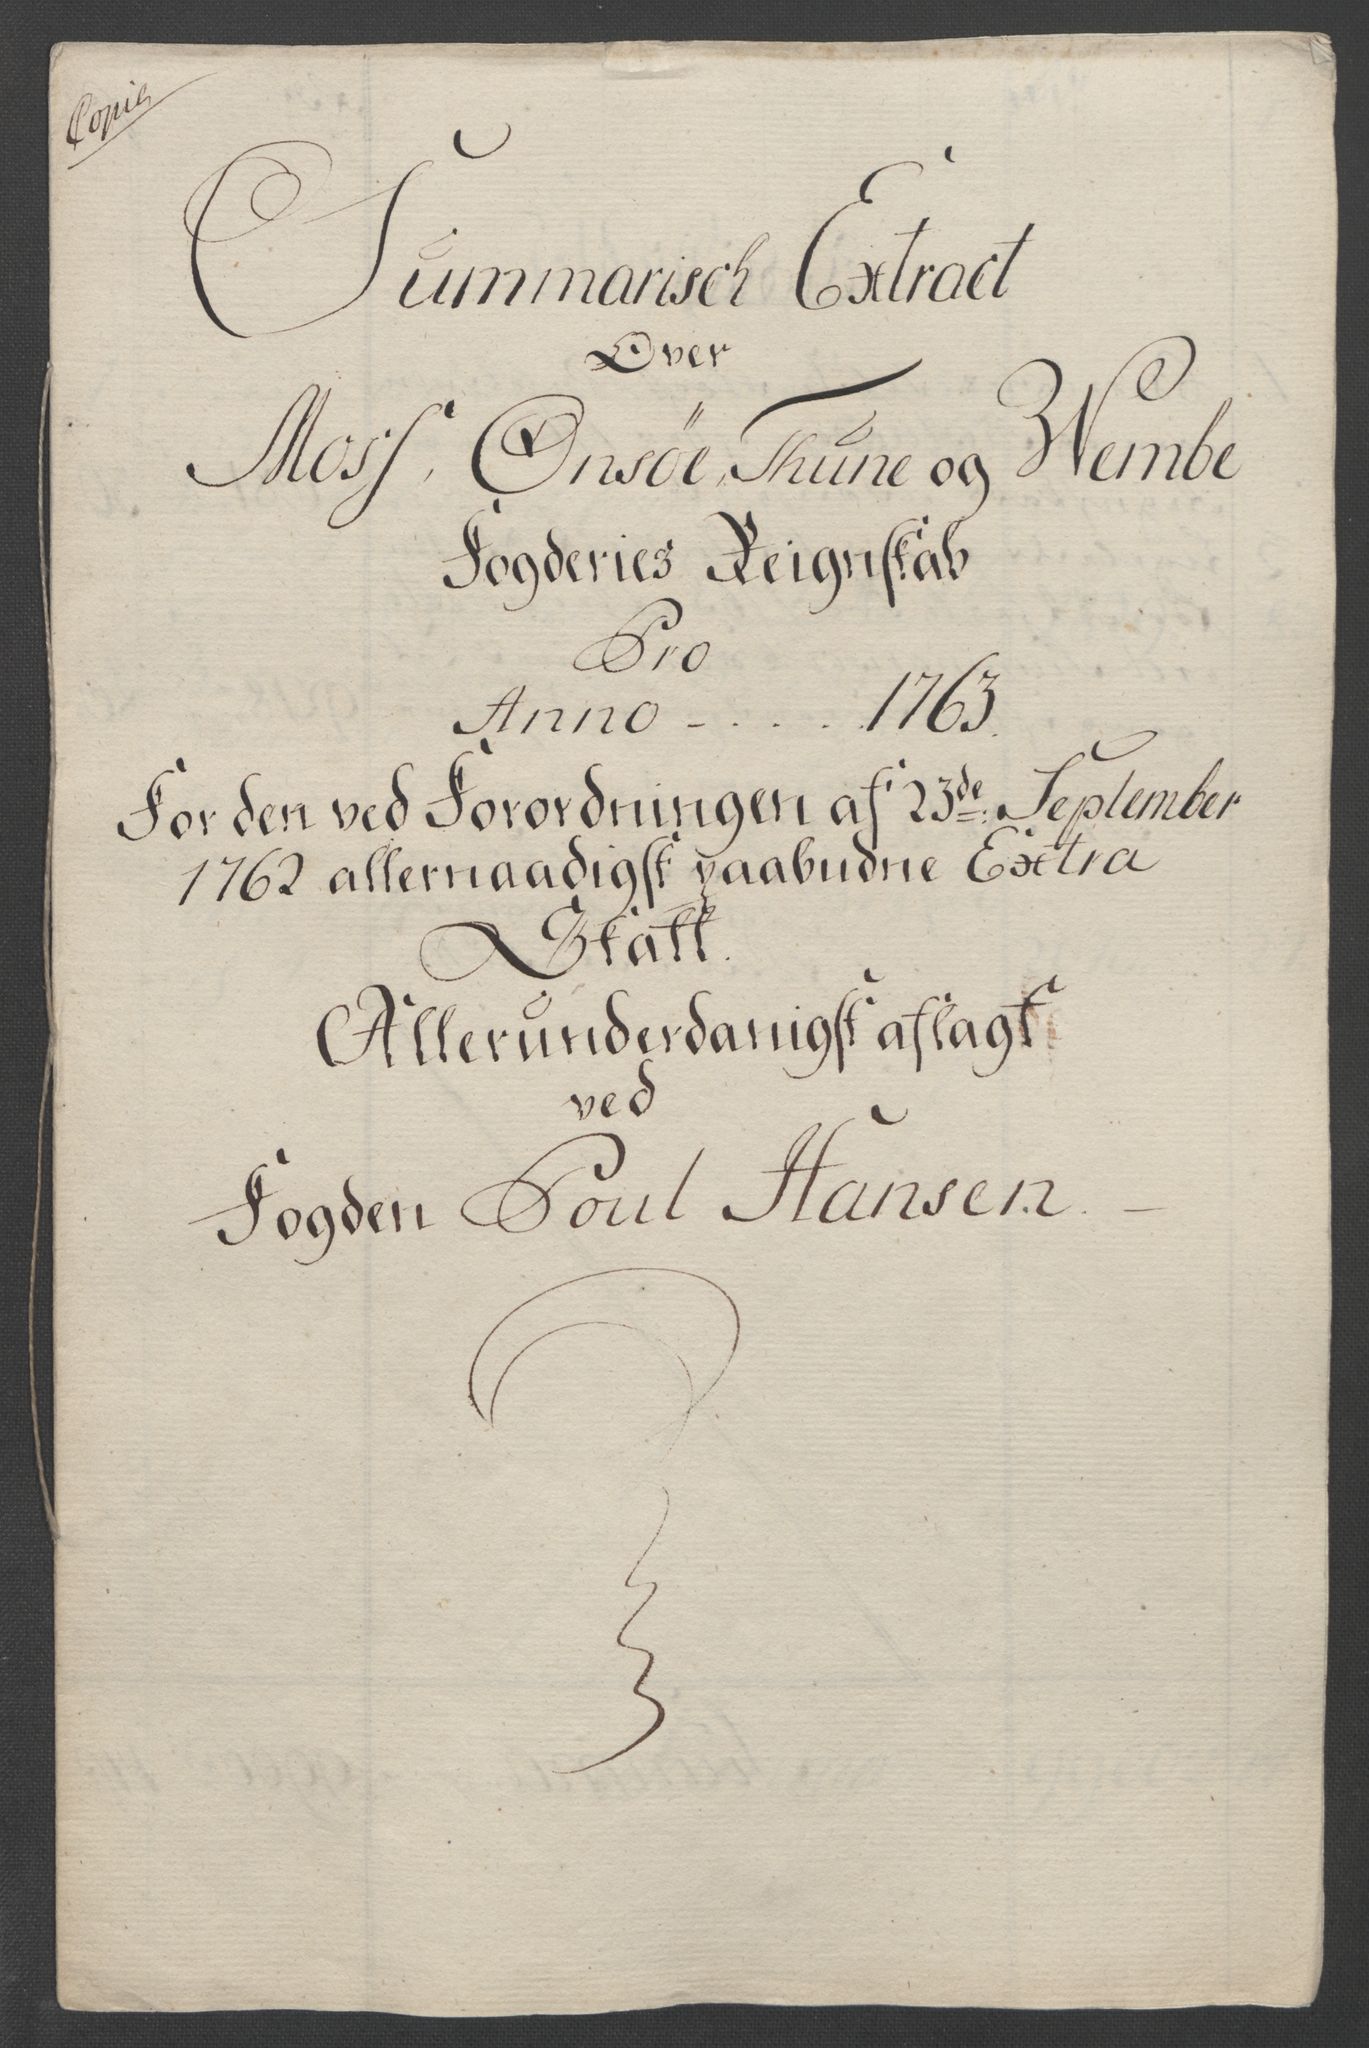 Copie
Summarisch Extract
Over
Moss, Onsøe, Thune og Wembe
Fogderies Reignskab
Pro
Anno - . . . . 1763.
For den ved Forordningen af 23de September
1762 allernaadigst paabudne Extra
Skatt.
Allerunderdanigst aflagt
ved
Fogden Poul Hansen. —